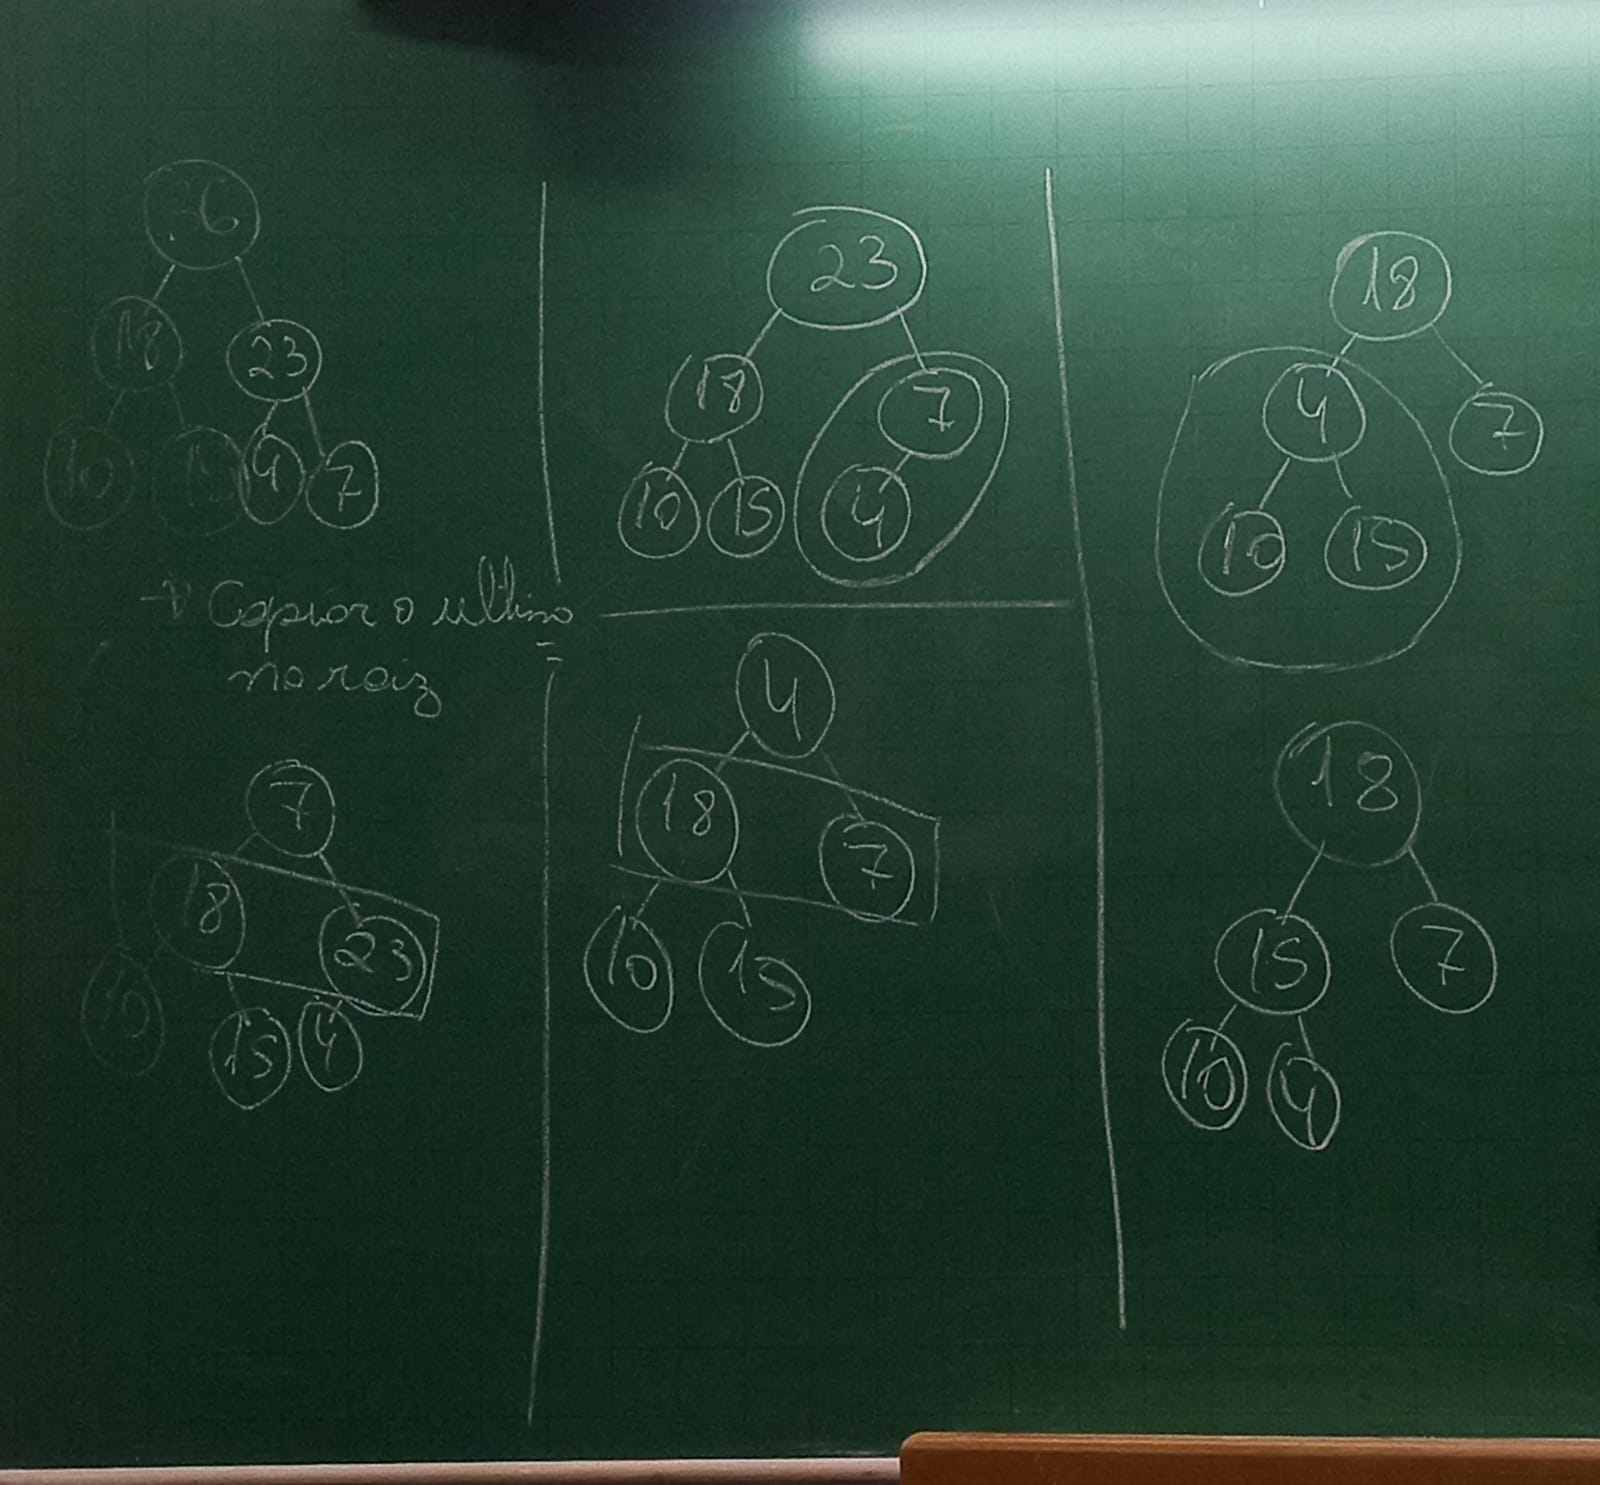 36
18 23
10 15 4 7
→ Copiar o último
na raiz
7
18 23
10 15 4
23
18 7
10 15 4
4
18 7
10 15
18
4 7
10 15
18
15 7
10 4